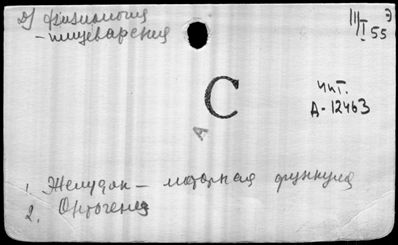 2) физиология
- пищеварения
III/I 55 Э
С
А
Чит.
Д-12463
1. Желудок — моторная функция
2. Онтогенез